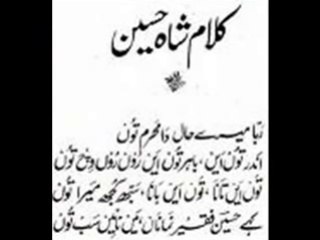 کلام شاہ حسین
ربّا میرے حال دا محرم توں
اندر توں ایں، باہر توں ایں رُوں رُوں وِچ توں
توں ایں تانا، توں ایں بانا، سبھ کجھ میرا توں
کہے حسین فقیر نماناں، میں ناہیں سب توں